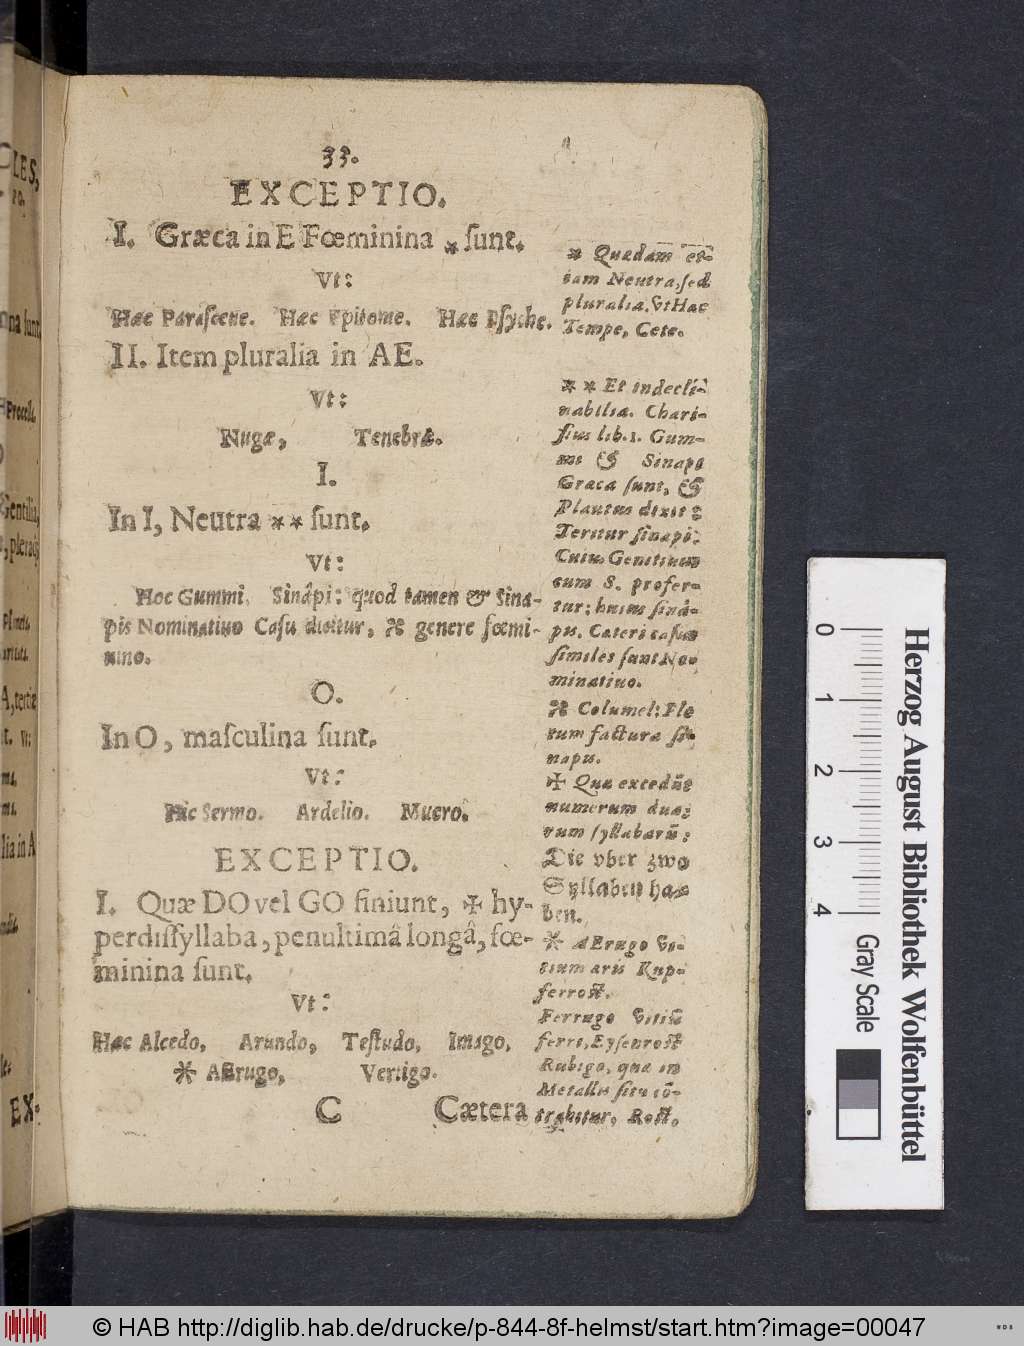 33.
EXCEPTIO.
I. Græca in E Fœminina * ſunt.
Vt:
Hæc Paraſceue. Hæc Epitome. Hæc Pſyche.
II. Item pluralia in AE.
Vt:
Nugæ, Tenebræ.
I.
In I, Neutra ** ſunt.
Vt:
Hoc Gummi. Sinâpi: quod tamen & Sina-
pis Nominatiuo Caſu dicitur, ⌘ genere fœmi-
nino.
O.
In O, maſculina ſunt.
Vt:
Hic Sermo. Ardelio. Mucro.
EXCEPTIO.
I. Quæ DO vel GO finiunt, ✠ hy-
perdiſſyllaba, penultimâ longâ, fœ-
minina ſunt.
Vt:
Hæc Alcedo, Arundo, Teſtudo, Imago,
* AErugo, Vertigo.
C Cætera
* Quædam et-
iam Neutra, ſed
pluralia. vt Hæc
Tempe, Cete.
** Et indecli-
nabilia. Chari-
ſius lib. 1. Gum-
mi & Sinapi
Græca ſunt, &
Plautus dixit:
Teritur ſinapi.
Cuius Genitiuus
cum S. profer-
tur: huius ſinâ-
pis. Cæteri caſus
ſimiles ſunt No-
minatiuo.
⌘ Columel: Ple
rum facturæ ſi-
napis.
✠ Quæ excedũt
numerum dua-
rum ſyllabarũ:
Die vber zwo
Syllaben ha-
ben.
* AErugo vi-
tium æris Kup-
ferroſt.
Ferrugo vitiũ
ferri, Eyſenroſt
Rubigo, quæ in
Metallis ſitu cõ-
trahitur, Roſt.
LES,
Gentilia,
A, tertiæ
lia in A
EX-
0 1 2 3 4
Gray Scale
Herzog August Bibliothek Wolfenbüttel
© HAB http://diglib.hab.de/drucke/p-844-8f-helmst/start.htm?image=00047